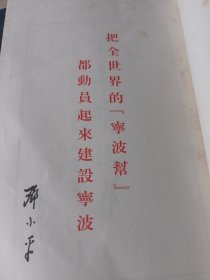 把全世界的『寧波幫』
都動員起來建設寧波
邓小平